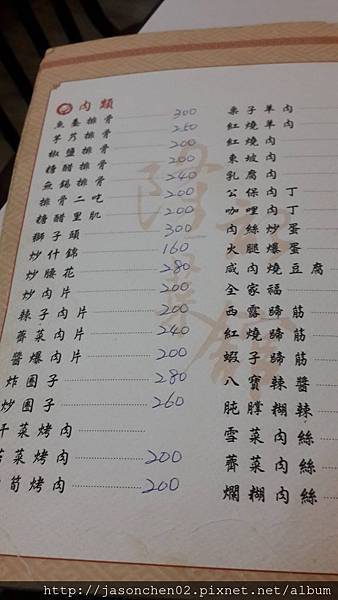 肉類
魚羹排骨 300
芋艿排骨 250
椒鹽排骨 200
糖醋排骨 200
無錫排骨 240
排骨二吃 200
糖醋里肌 200
獅子頭 300
炒什錦 160
炒腰花 280
炒肉片 200
辣子肉片 200
薺菜肉片 240
醬爆肉片 200
炸圈子 280
炒圈子 260
干菜烤肉
菜烤肉 200
筍烤肉 200
栗子羊肉
紅燒羊肉
紅燒肉
東坡肉
乳腐肉
公保肉丁
咖哩肉丁
肉絲炒蛋
火腿爆蛋
咸肉燒豆腐
全家福
西露蹄筋
紅燒蹄筋
蝦子蹄筋
八寶辣醬
肫膛糊辣
雪菜肉絲
薺菜肉絲
爛糊肉絲
http://jasonchen02.pixnet.net/album